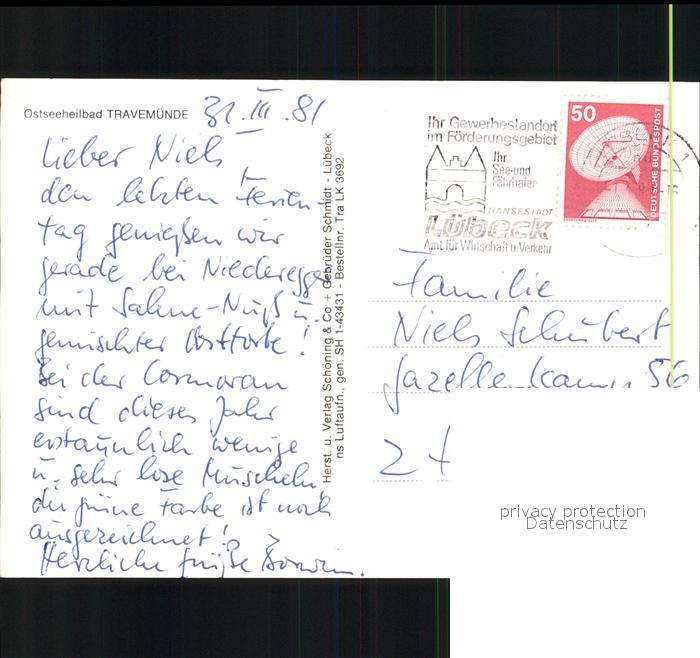 Ostseeheilbad TRAVEMÜNDE
31. III. 81
Lieber Niels,
den letzten Ferien-
tag genießen wir
gerade bei Niederegger
mit Sahne-Nuß u.
gemischter Obsttorte!
Bei der Cormoran
sind dieses Jahr
erstaunlich wenige
u. sehr lose Muscheln,
die grüne Farbe ist noch
ausgezeichnet!
Herzliche Grüße
Herst. u. Verlag Schöning & Co + Gebrüder Schmidt - Lübeck
ns Luftaufn., gen. SH 1-43431 - Bestellnr. Tra LK 3692
Ihr Gewerbestandort
im Förderungsgebiet
Ihr
See-und
Fährhafen
HANSESTADT
LÜBECK
Amt für Wirtschaft u. Verkehr
50
DEUTSCHE BUNDESPOST
Familie
Niels Schubert
Gazellenkamp 56
2
privacy protection
Datenschutz